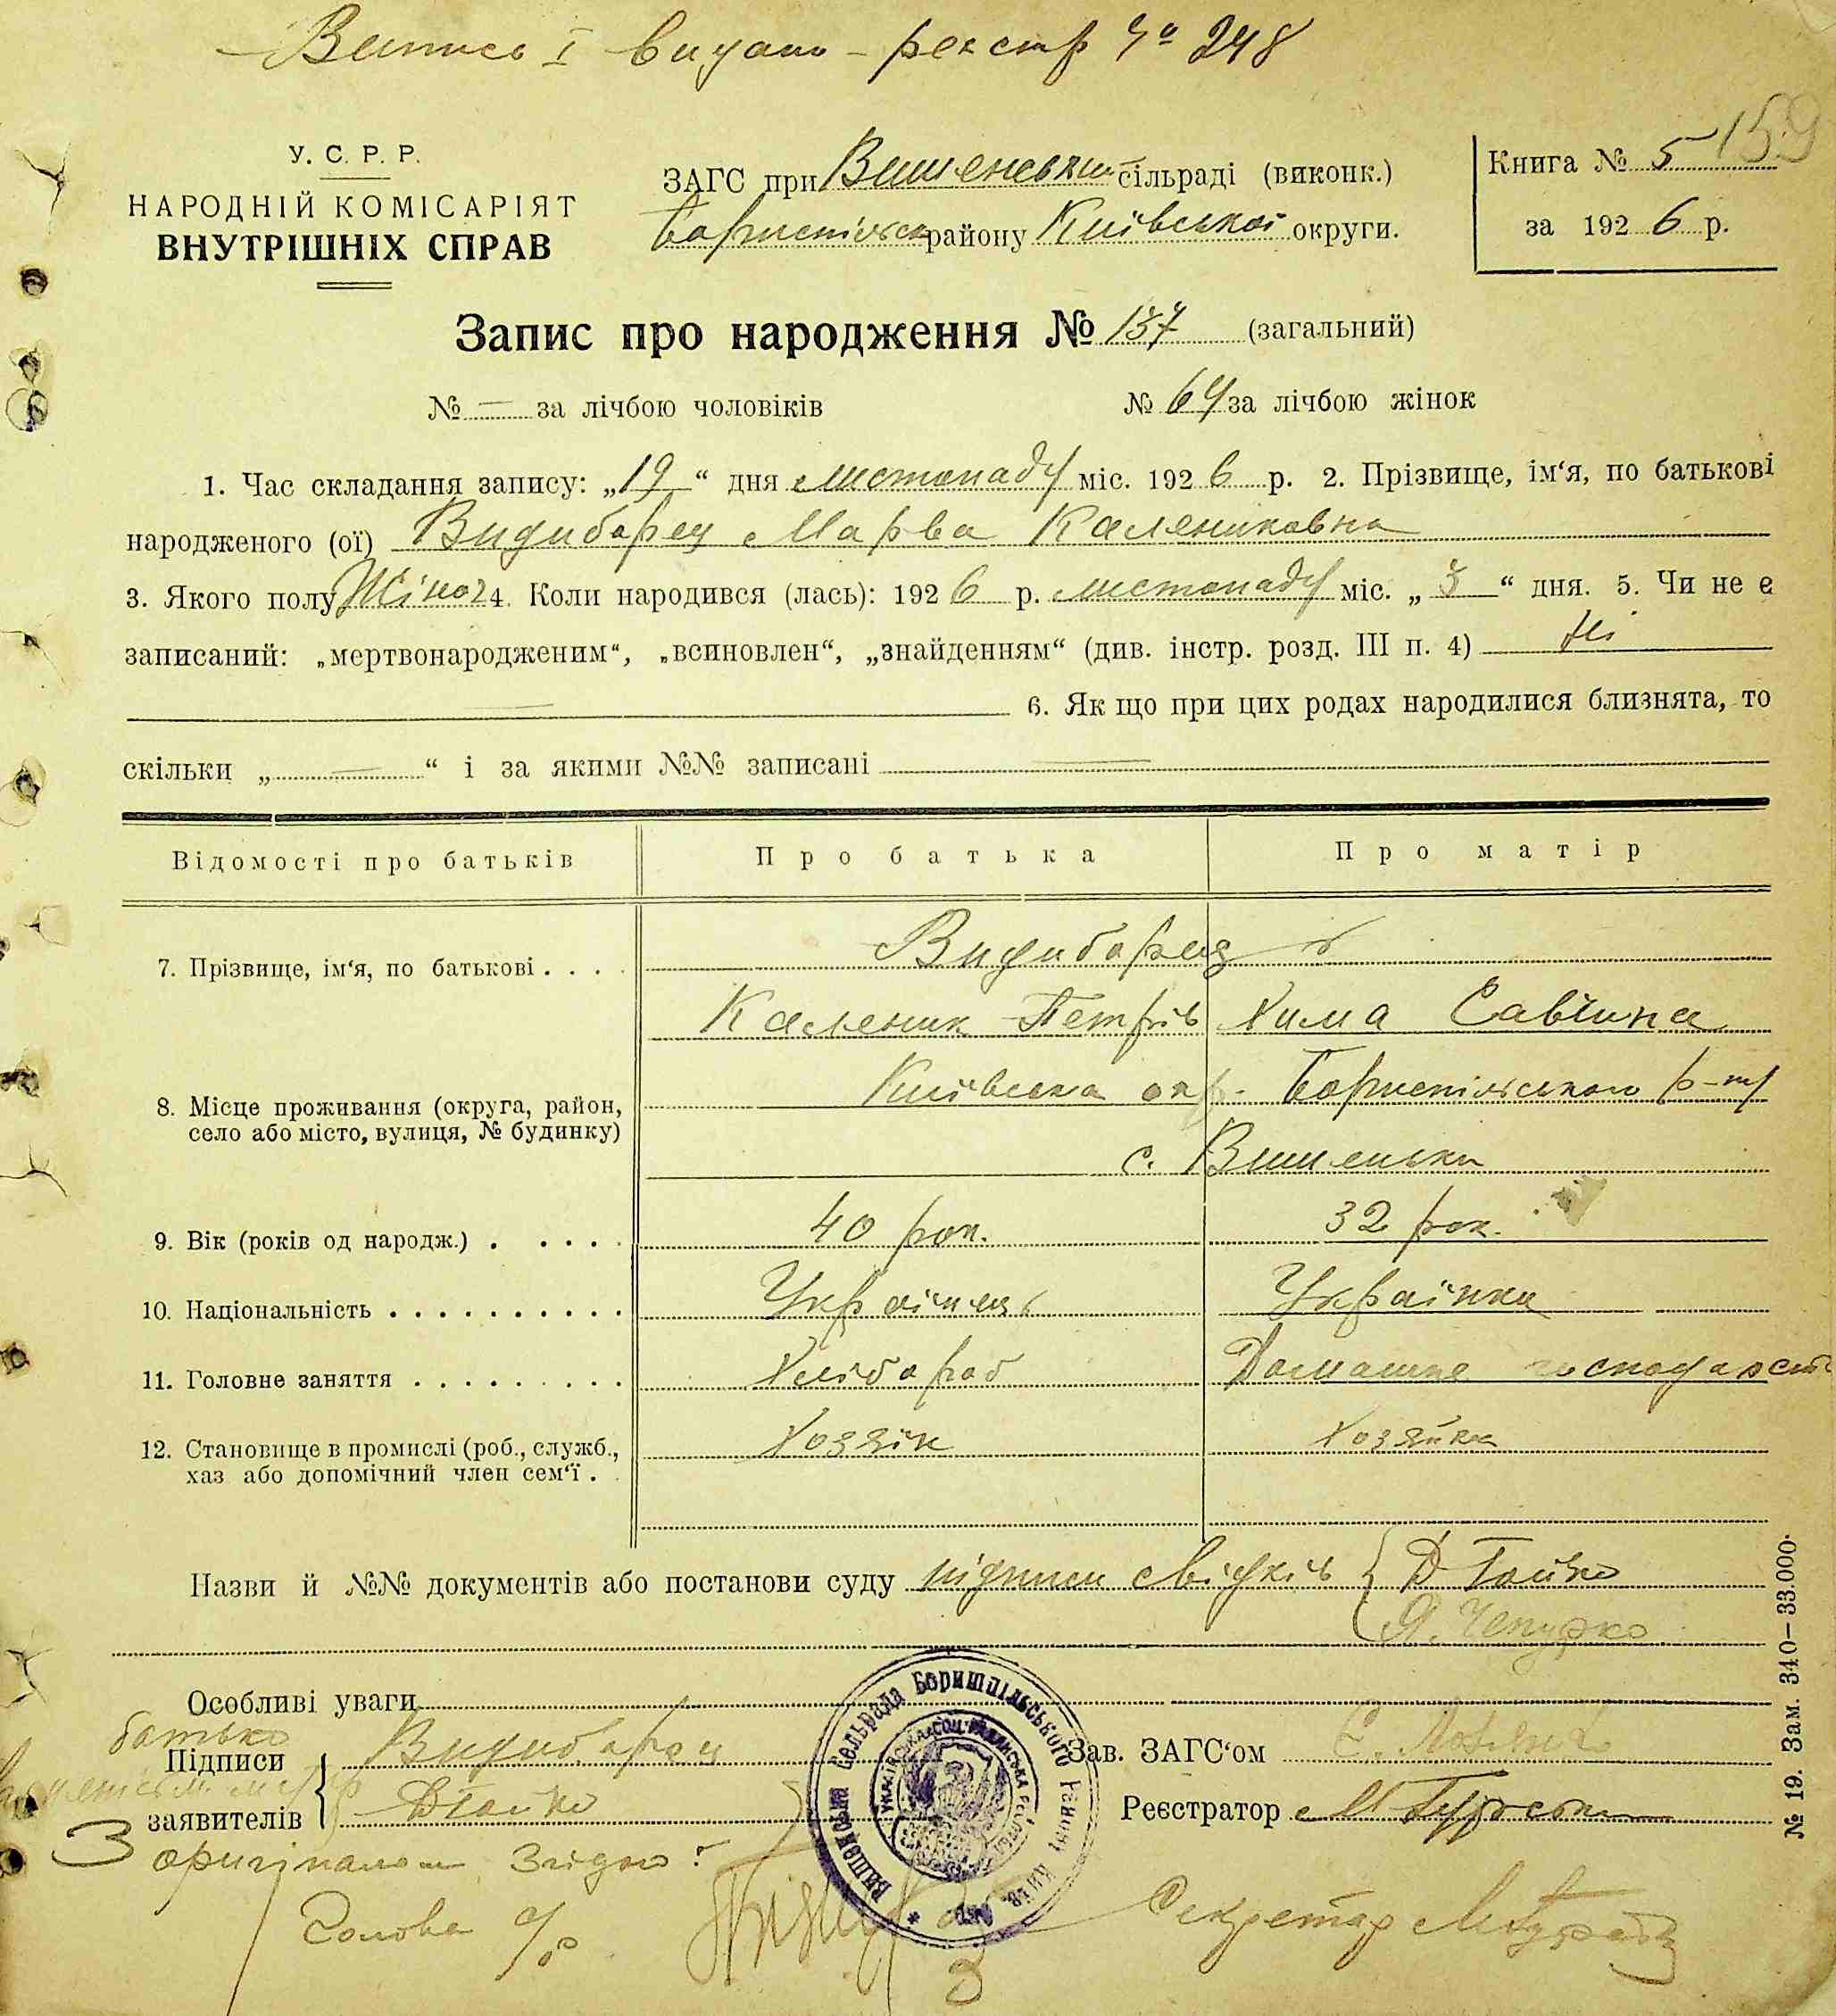 Випись I видано – реєстр № 248
159
У. С. Р. Р.
НАРОДНІЙ КОМІСАРІЯТ
ВНУТРІШНІХ СПРАВ
ЗАГС при Вишеневськ. сільраді (виконк.)
Бориспільск району Київської округи.
Книга № 5
за 1926 р.
Запис про народження № 137 (загальний)
№ — за лічбою чоловіків № 64 за лічбою жінок
1. Час складання запису: „19“ дня листопаду міс. 1926 р. 2. Прізвище, ім'я, по батькові
народженого (ої) Видиборец Марва Калениковна
3. Якого полу Жіноч 4. Коли народився (лась): 1926 р. листопаду міс. „3“ дня. 5. Чи не є
записаний: „мертвонародженим“, „всиновлен“, „знайденням“ (див. інстр. розд. III п. 4) Ні
— 6. Як що при цих родах народилися близнята, то
скільки „—“ і за якими №№ записані —
Відомості про батьків Про батька Про матір
7. Прізвище, ім'я, по батькові . . . . Видиборец
Каленик Петрів Хима Савівна
8. Місце проживання (округа, район, село або місто, вулиця, № будинку) Київська окр. Бориспільського р-ну
с. Вишеньки
9. Вік (років од народж.) . . . . . 40 рок. 32 рок.
10. Національність . . . . . . . . . . Українець Українка
11. Головне заняття . . . . . . . . . Хлібороб Домашнє господарст
12. Становище в промислі (роб., служб., хаз або допомічний член сем'ї . . Хозяін Хозяйка
Назви й №№ документів або постанови суду підписи свідків { Д Гайко
Я. Чепурко
Особливі уваги
батько
Підписи заявителів { Видиборец
Д Гайко
Зав. ЗАГС'ом
Реєстратор М
Вишенська Сельрада Бориспільського Району Київ. Окр.
УКРАЇНСЬКА СОЦ. РАДЯНСЬКА РЕСПУБ.
З оригіналом згідно:
Голова с/р
Секретар
№ 19. Зам. 340–33.000.